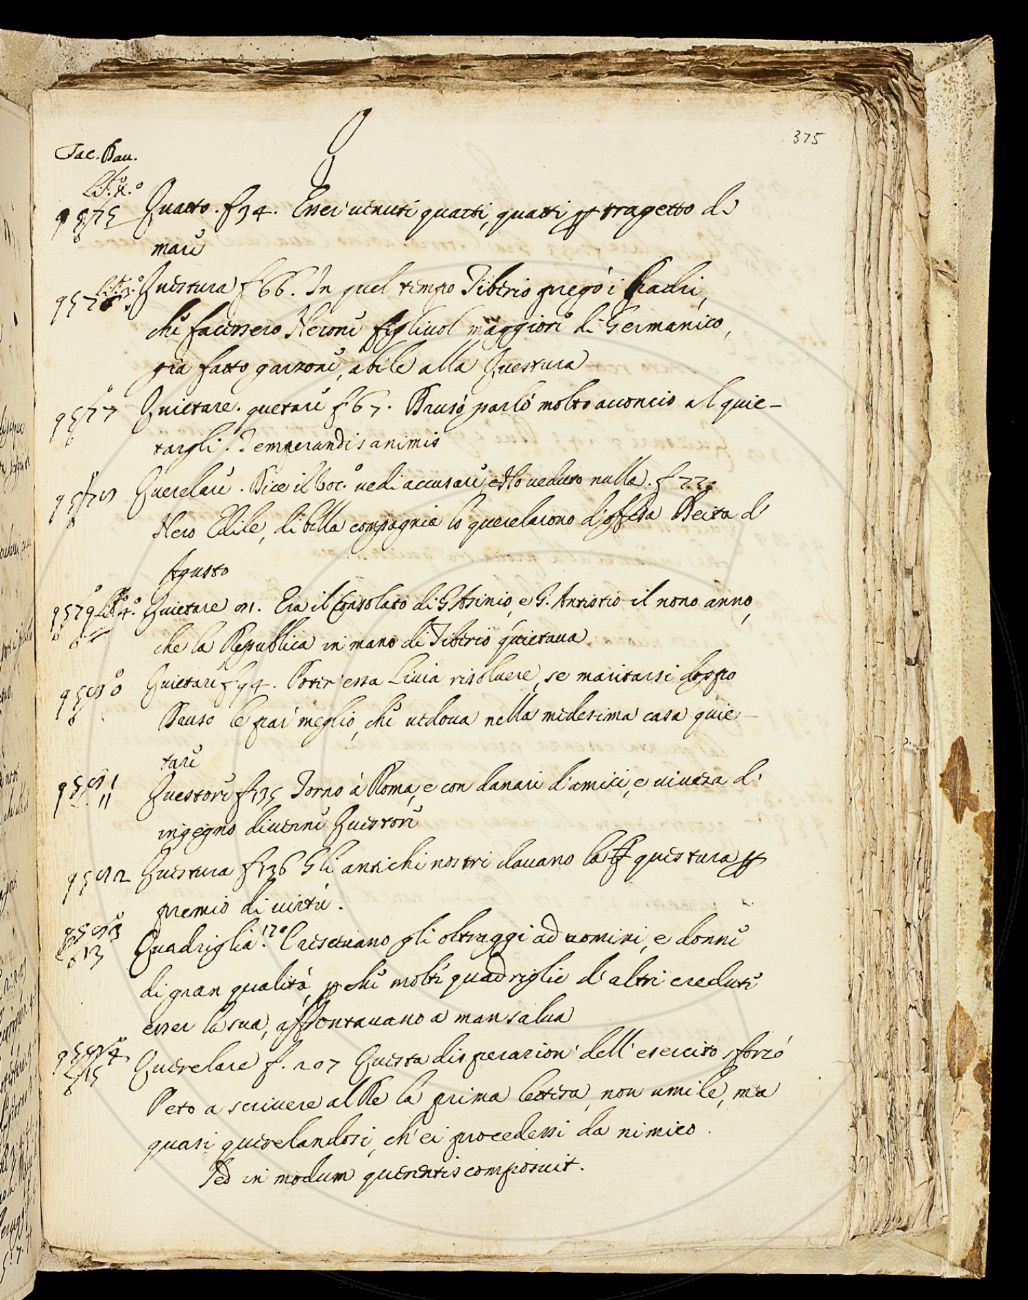 375
Q
Tac. Dav.
Quatto. f34. Esser venuti quatti, quatti p tragetto di
mare
Questura f66. In quel tempo Tiberio pregò i Padri,
che facessero Nerone figliuol maggiore di Germanico,
già fatto garzone, abile alla Questura
9577 Quietare. quetare f67. Druso parlò molto acconcio al quie-
targli. Temperandis animis
Querelare. Dice il Voc. vedi accusare e Ho veduto nulla. f77.
Nero Edile, di bella compagnia lo querelarono d'offesa Deità d'
Agusto
Quietare 91. Era il Consolato di G. Asinio, e G. Antistio il nono anno,
che la Republica in mano di Tiberio quietava
Quietare f94. Poter essa Livia risolvere, se maritarsi doppo
Druso le par meglio, che vedova nella medesima casa quie
tare
Questore f135 Tornò à Roma, e con danari d'amici, e vivezza d'
ingegno divenne Questore
Questura f136 Gli antichi nostri davano la questura p
premio di virtù.
Quadriglia. 170 Crescevano gli oltraggi ad uomini, e donne
di gran qualità, p che molte quadriglie d'altri credute
esser la sua, affrontavano a man salva
Querelare f. 207 Questa disperazione dell'esercito sforzò
Peto a scrivere al Re la prima lettera, non umile, ma
quasi querelandosi, ch'ei procedessi da nimico.
Sed in modum querentis composuit.